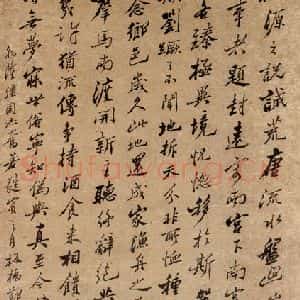 源之說誠荒唐流水盤
事者題封遠寄南宮下南宮
各臻極異境恍惚移於斯
劉蹶了不聞地坼天分非所恤種
念鄉邑歲久此地還成家漁舟之
群馬南渡開新主聽終辭絕共
幾許猶流傳爭持酒食來相饋
無夢寐世俗寧知偽與真至今
Shufawang.cn